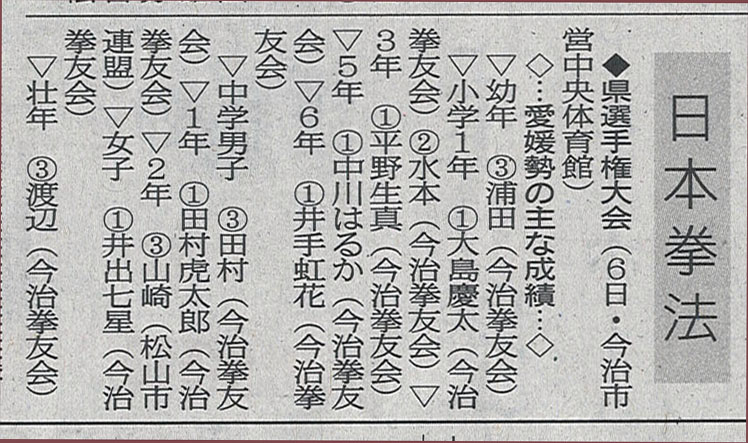 日本拳法
◆県選手権大会（６日・今治市
営中央体育館）
◇…愛媛勢の主な成績…◇
▽幼年　③浦田（今治拳友会）
▽小学１年　①大島慶太（今治
拳友会）②水本（今治拳友会）▽
３年　①平野生真（今治拳友会）
▽５年　①中川はるか（今治拳友
会）▽６年　①井手虹花（今治拳
友会）
▽中学男子　③田村（今治拳友
会）▽１年　①田村虎太郎（今治
拳友会）▽２年　③山崎（松山市
連盟）▽女子　①井出七星（今治
拳友会）
▽壮年　③渡辺（今治拳友会）